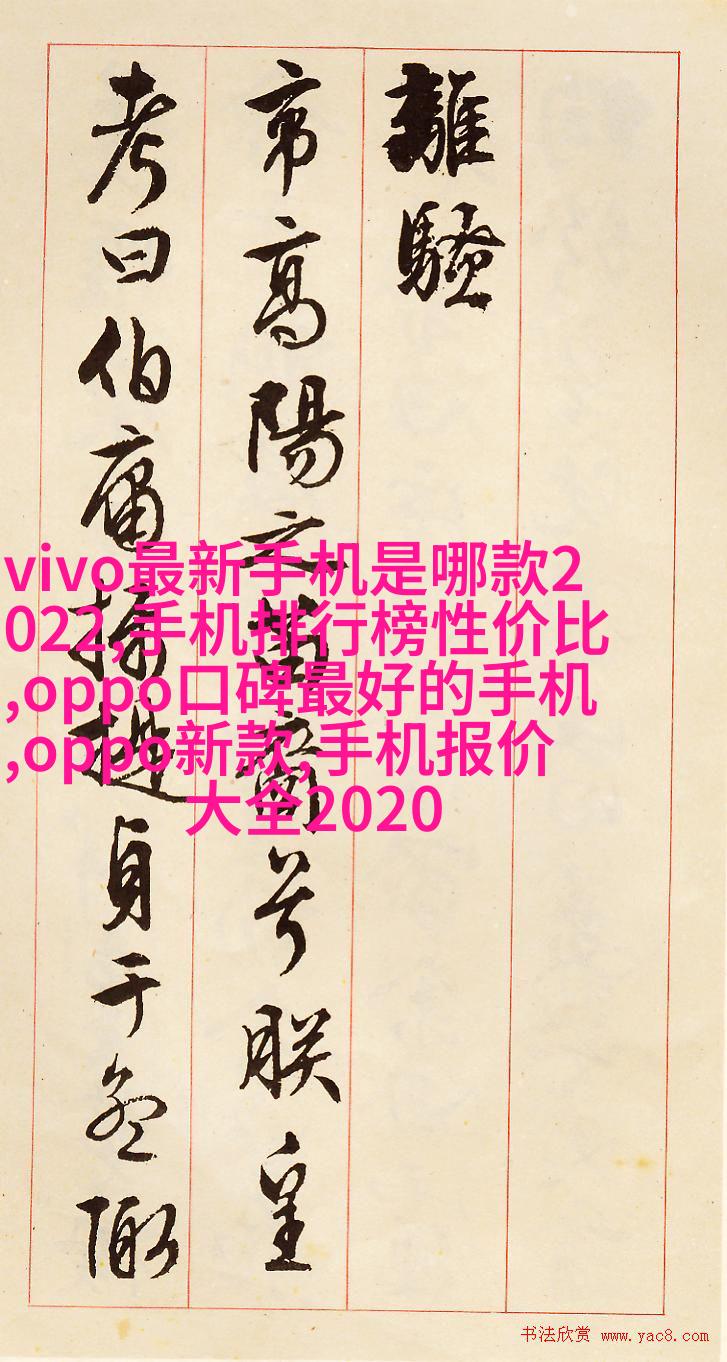 離騷
帝高陽之苗裔兮朕皇
考曰伯庸攝提貞于孟陬
vivo最新手机是哪款2
022,手机排行榜性价比
,oppo口碑最好的手机
,oppo新款,手机报价
大全2020
书法欣赏 www.yac8.com